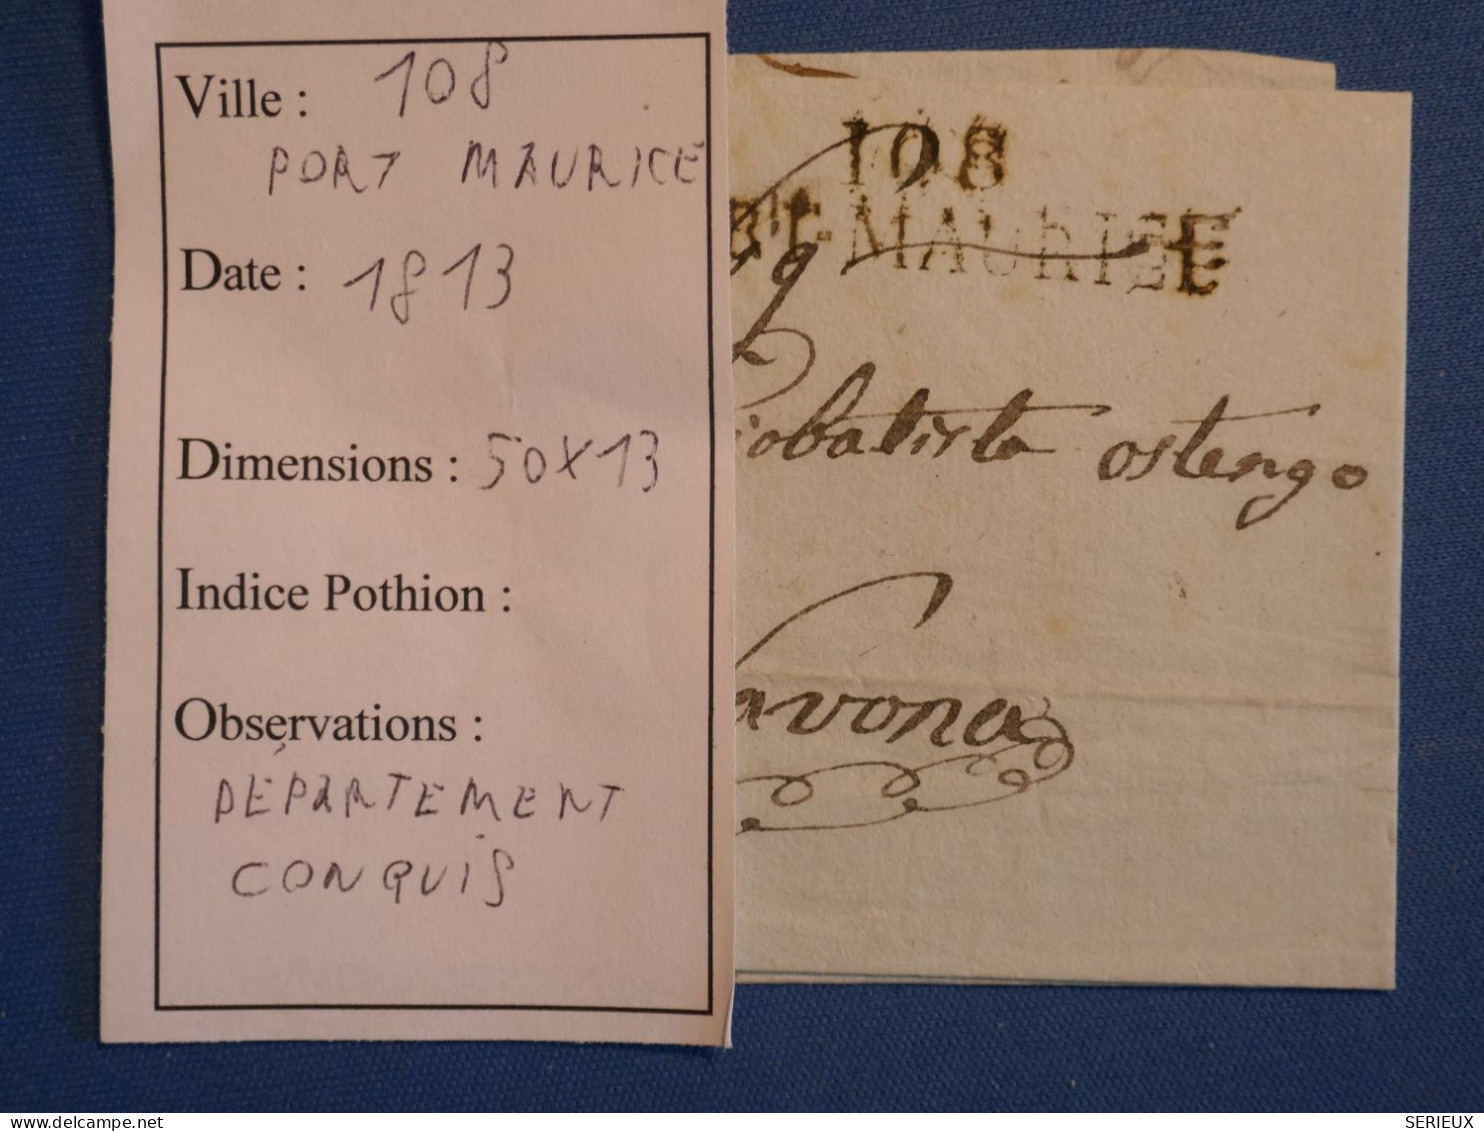 Ville : 108
PORT MAURICE
Date : 1813
Dimensions : 50X13
Indice Pothion :
Observations :
DEPARTEMENT
CONQUIS
108
MAURICE
ostengo
avona
SERIEUX